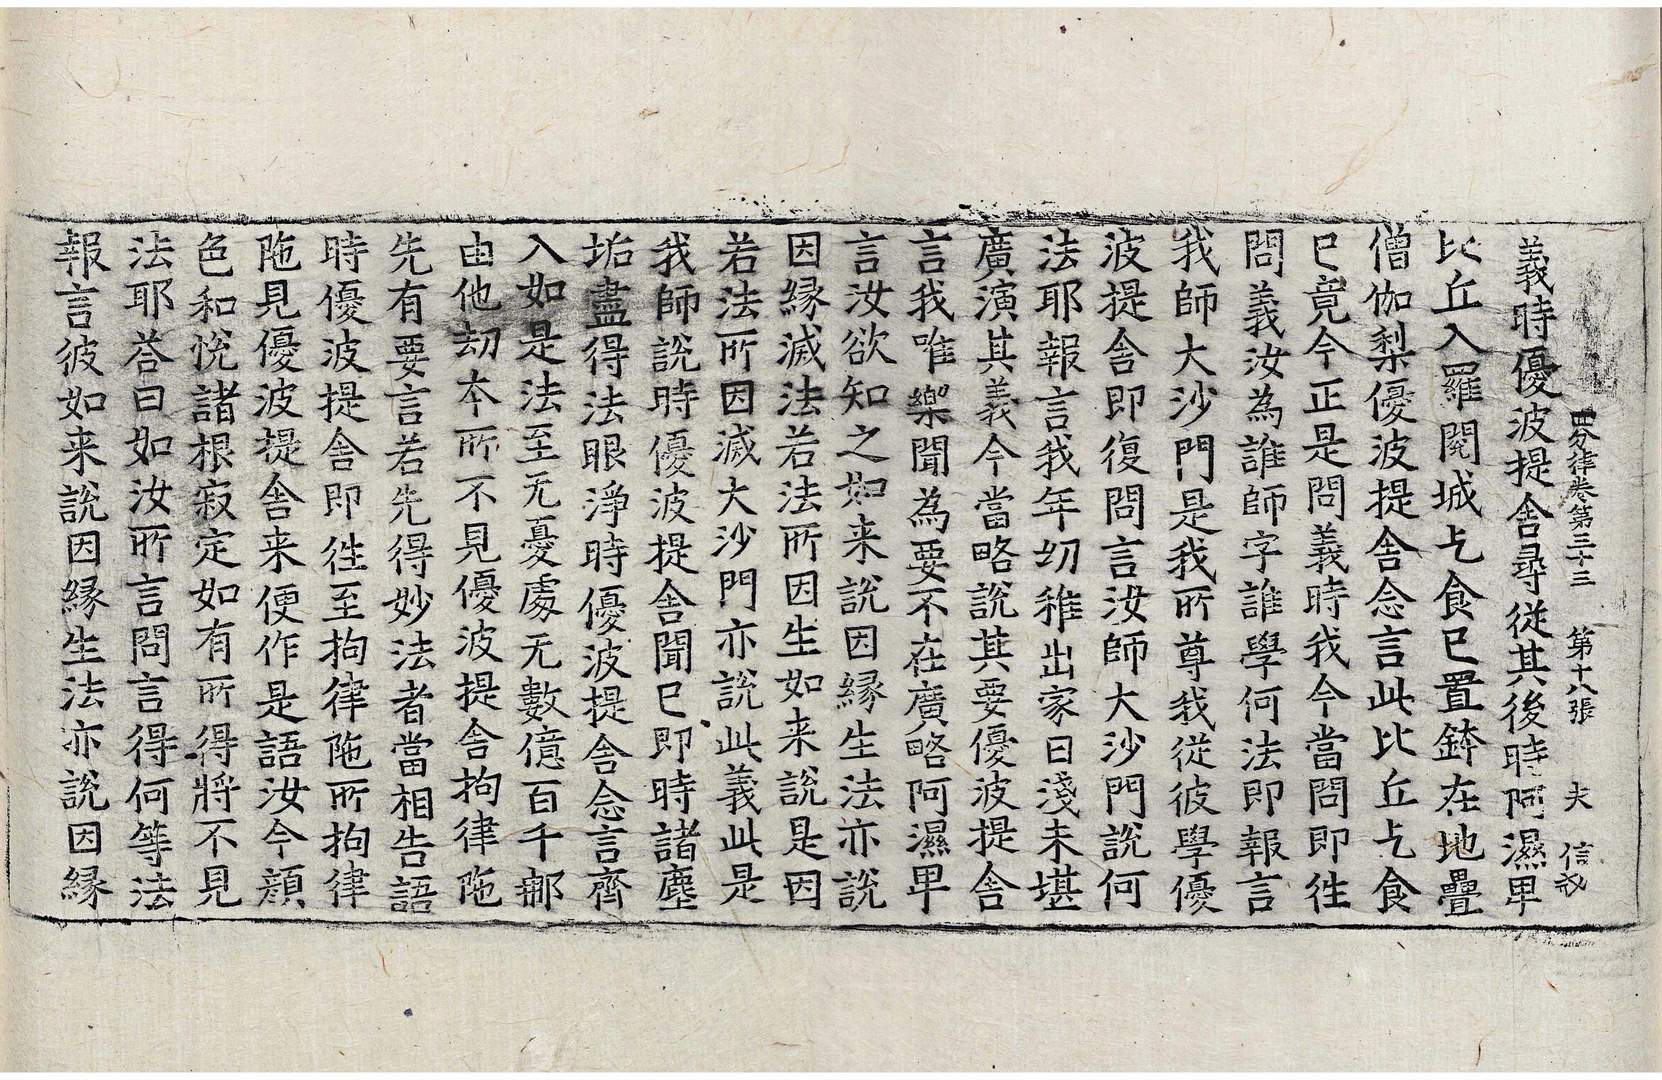 四分律卷第三十三 第十八張 夫 信戒
義時優波提舍尋從其後時阿濕卑
比丘入羅閱城乞食已置鉢在地疊
僧伽梨優波提舍念言此比丘乞食
已竟今正是問義時我今當問即徃
問義汝為誰師字誰學何法即報言
我師大沙門是我所尊我從彼學優
波提舍即復問言汝師大沙門說何
法耶報言我年幼稚出家日淺未堪
廣演其義今當略說其要優波提舍
言我唯樂聞為要不在廣略阿濕卑
言汝欲知之如来說因緣生法亦說
因緣滅法若法所因生如来說是因
若法所因滅大沙門亦說此義此是
我師說時優波提舍聞已即時諸塵
垢盡得法眼淨時優波提舍念言齊
入如是法至无憂處无數億百千那
由他劫本所不見優波提舍拘律陁
先有要言若先得妙法者當相告語
時優波提舍即徃至拘律陁所拘律
陁見優波提舍来便作是語汝今顏
色和悅諸根寂定如有所得將不見
法耶荅曰如汝所言問言得何等法
報言彼如来說因緣生法亦說因緣